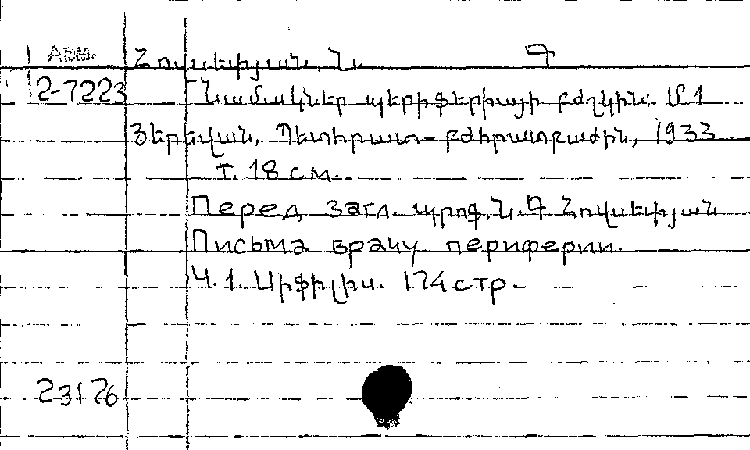 Арм. Հովսեփյան Ն. Գ
2-7223 Նամակներ պերիֆերիայի բժշկին. Մ. 1
Յերևան, Պետհրատ - բժհրատբաժին, 1933
т. 18 см.
Перед загл. պրոֆ. Ն. Գ. Հովսեփյան
Письма врачу периферии.
Ч. 1. Սիֆիլիս. 174 стр.
23176